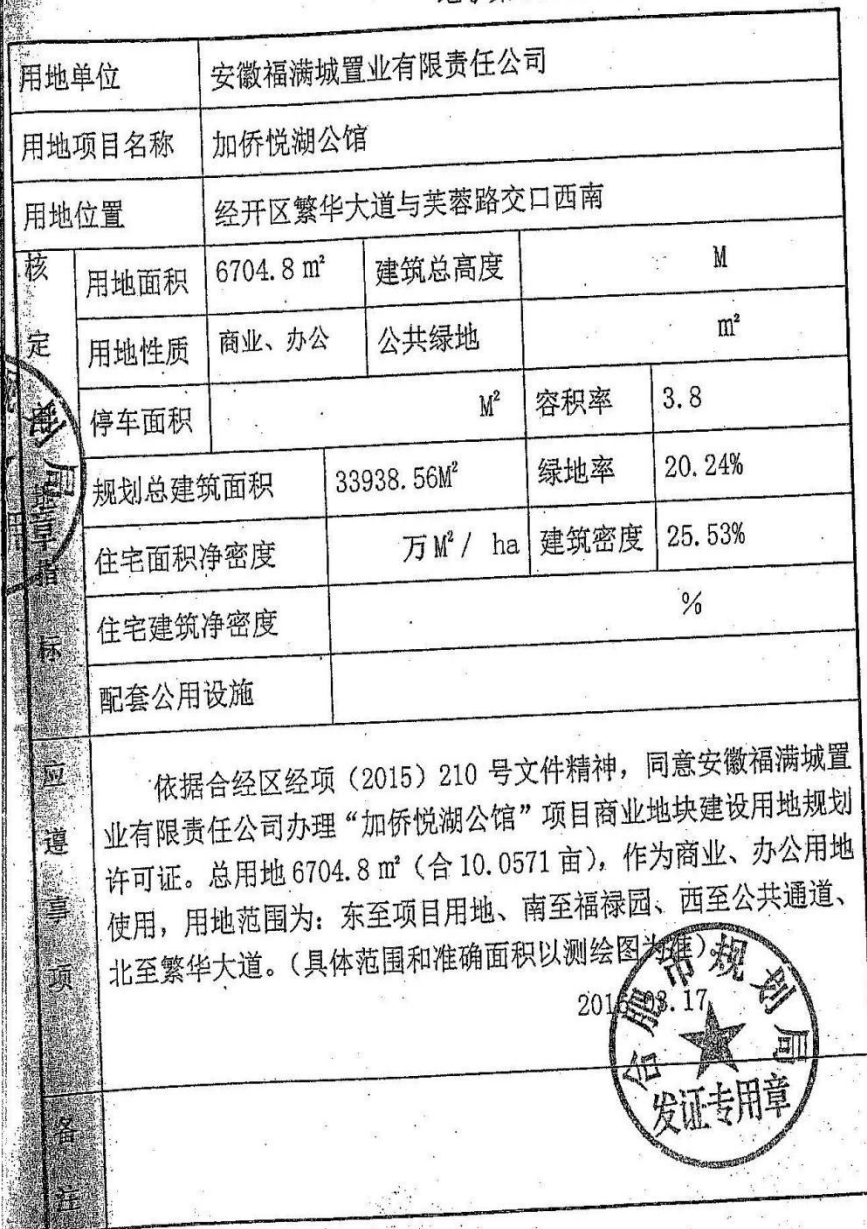 用地单位 安徽福满城置业有限责任公司
用地项目名称 加侨悦湖公馆
用地位置 经开区繁华大道与芙蓉路交口西南
核定 指标
用地面积 6704.8㎡ 建筑总高度 M
用地性质 商业、办公 公共绿地 ㎡
停车面积 M² 容积率 3.8
规划总建筑面积 33938.56M² 绿地率 20.24%
住宅面积净密度 万M²/ ha 建筑密度 25.53%
住宅建筑净密度 %
配套公用设施
应遵事项
依据合经区经项（2015）210 号文件精神，同意安徽福满城置
业有限责任公司办理“加侨悦湖公馆”项目商业地块建设用地规划
许可证。总用地6704.8㎡（合10.0571亩），作为商业、办公用地
使用，用地范围为：东至项目用地、南至福禄园、西至公共通道、
北至繁华大道。（具体范围和准确面积以测绘图为准）
03.17
合肥市规划局
发证专用章
备注